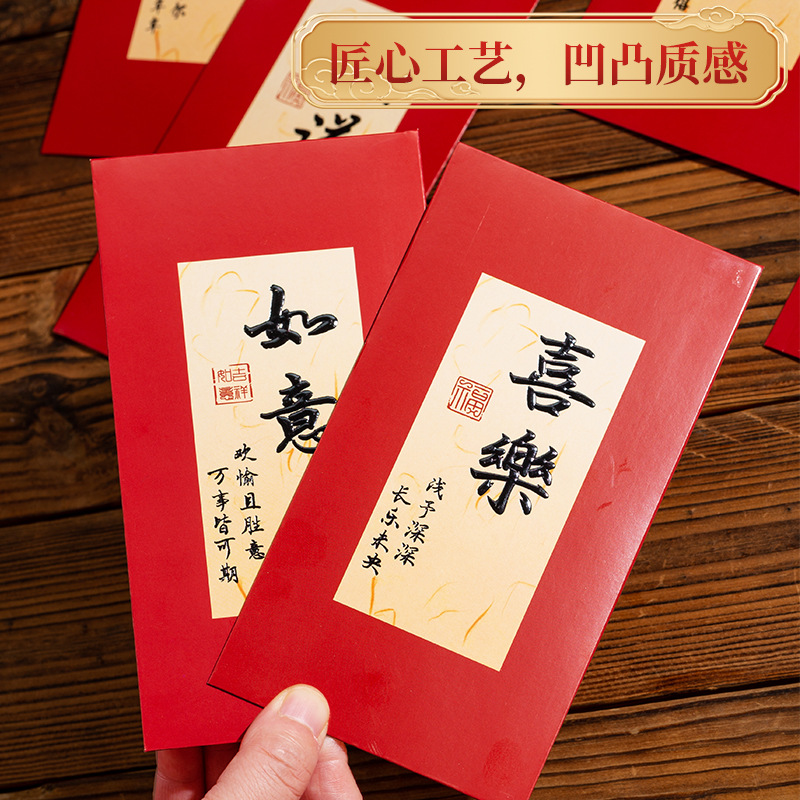 匠心工艺，凹凸质感
如意
吉祥
如意
欢愉且胜意
万事皆可期
喜樂
福
浅予深深
长乐未央